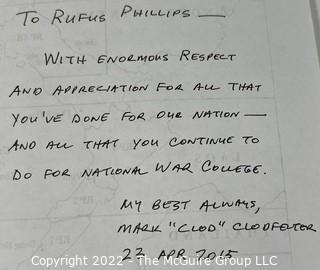 To Rufus Phillips —
With enormous respect
and appreciation for all that
you've done for our nation —
and all that you continue to
do for National War College.
My best always,
Mark "Clod" Clodfelter
22 Apr 2015
Copyright © 2022 - The McGuire Group, LLC